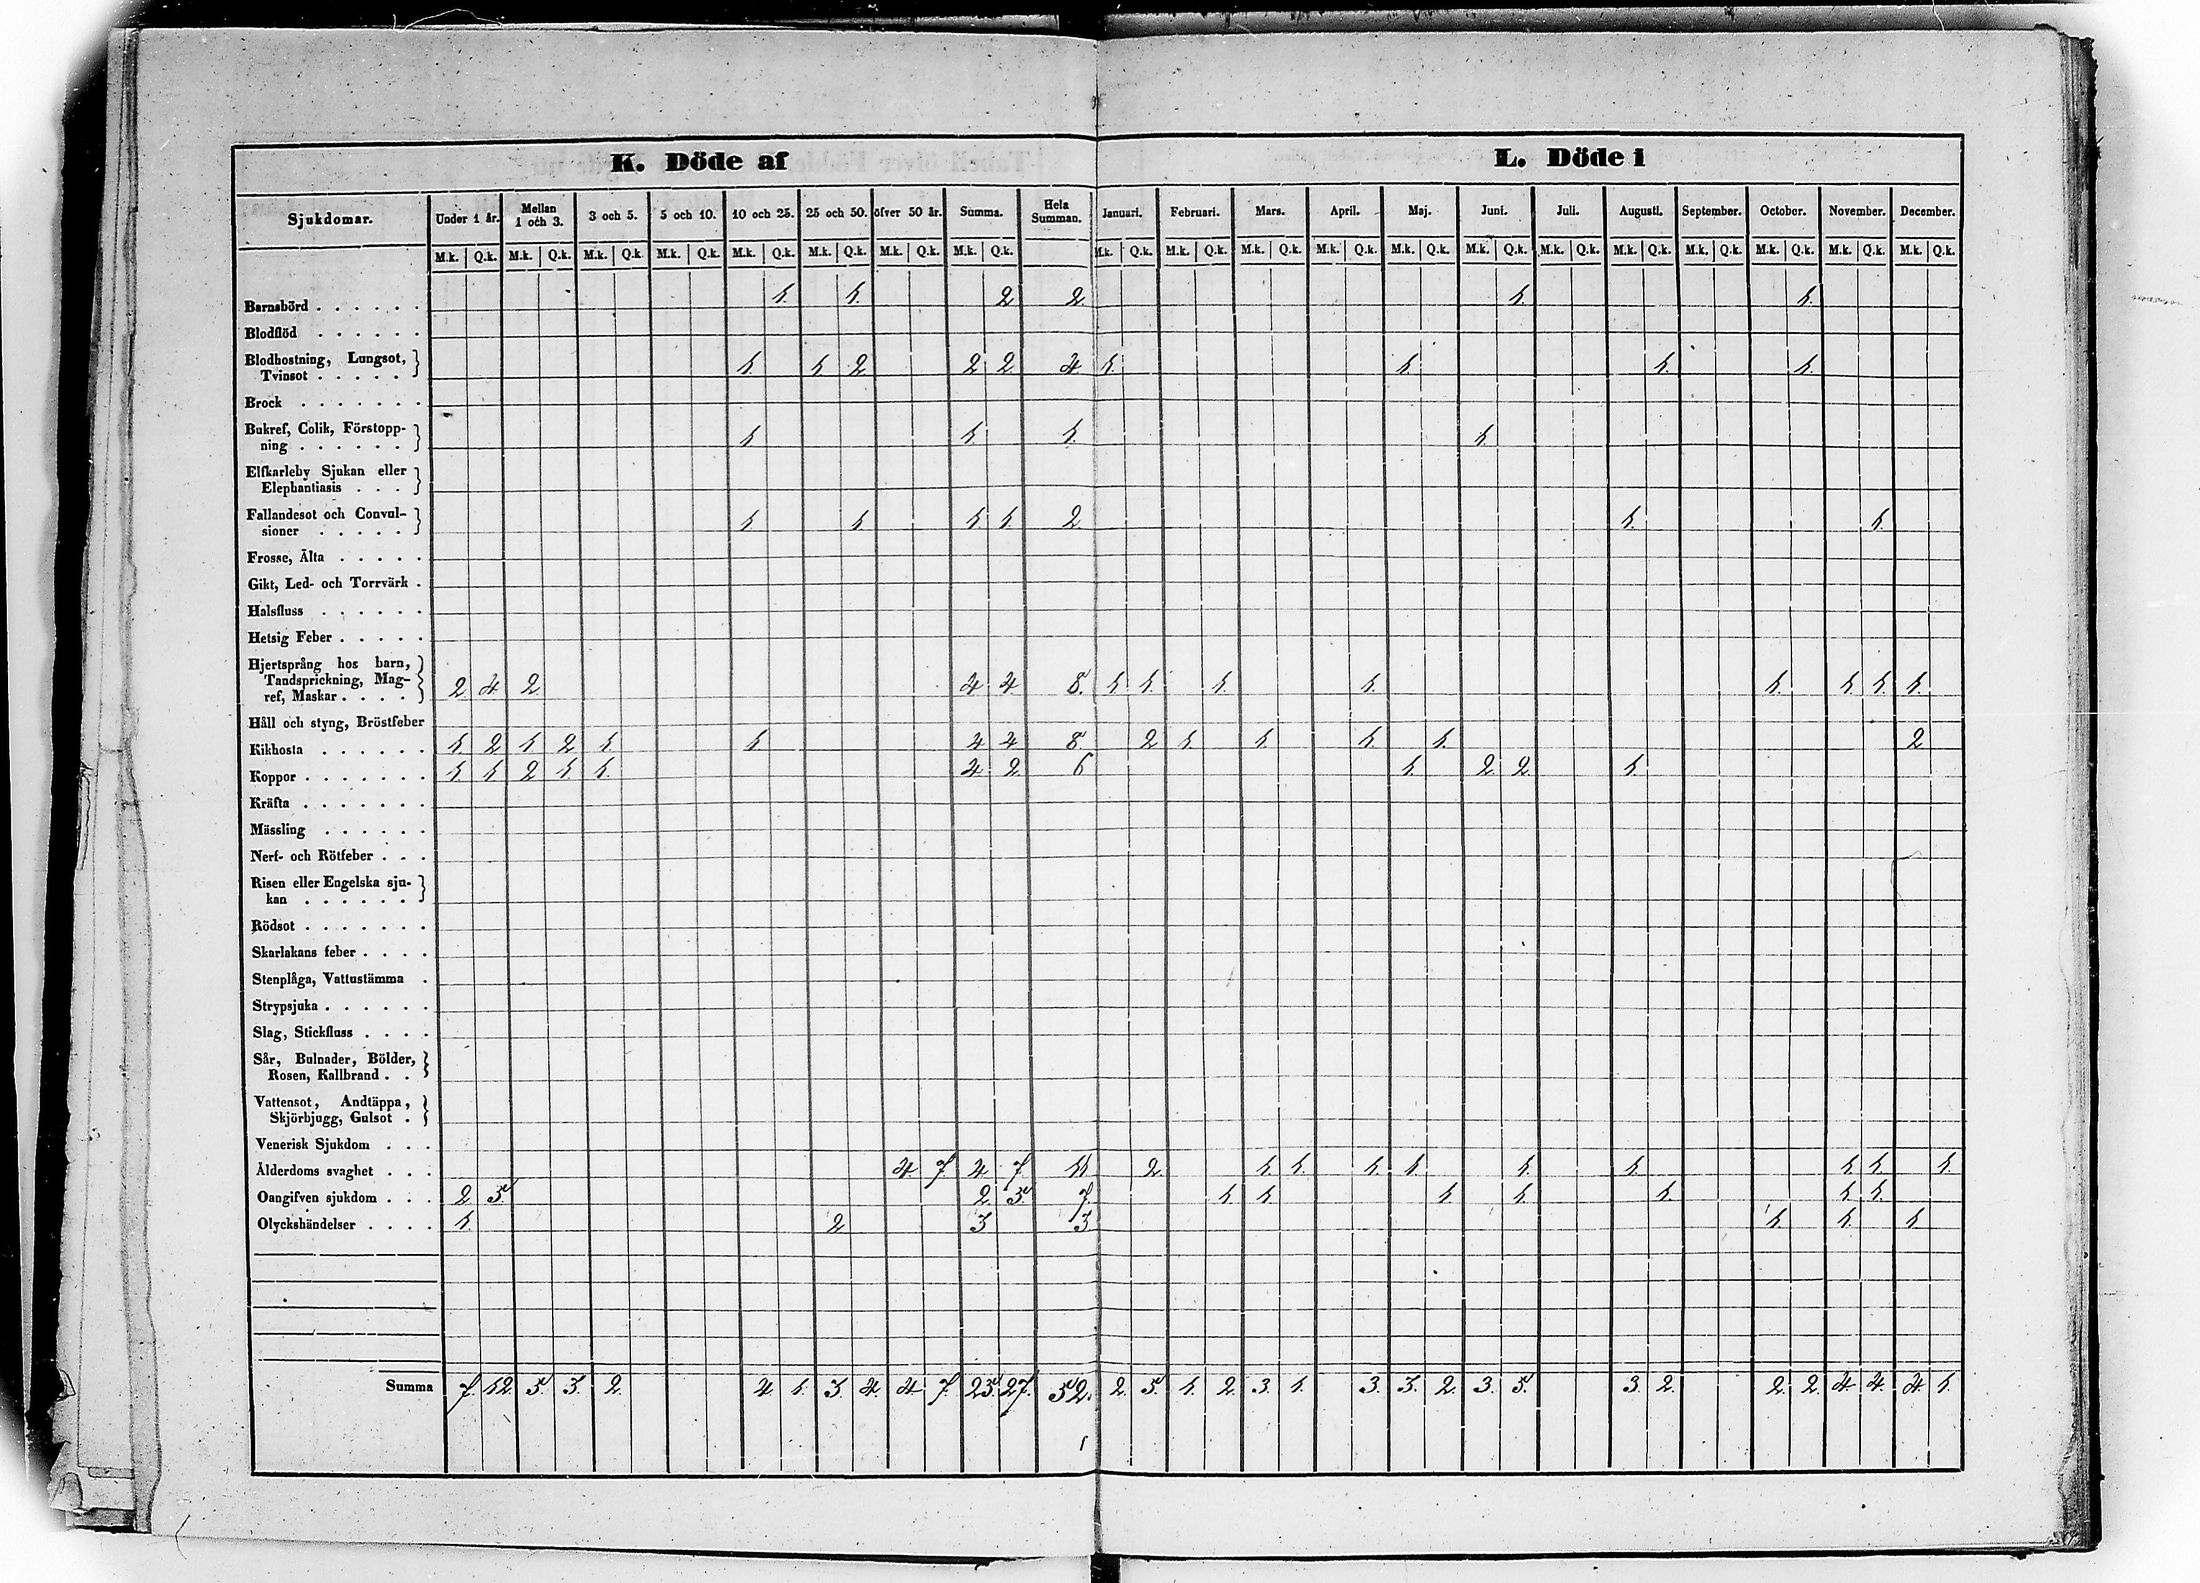 K. Döde af L. Döde i
Sjukdomar. Under 1 år. Mellan 1 och 3. 3 och 5. 5 och 10. 10 och 25. 25 och 50. öfver 50 år. Summa. Hela Summan. Januari. Februari. Mars. April. Maj. Juni. Juli. Augusti. September. October. November. December.
M.k. Q.k. M.k. Q.k. M.k. Q.k. M.k. Q.k. M.k. Q.k. M.k. Q.k. M.k. Q.k. M.k. Q.k. M.k. Q.k. M.k. Q.k. M.k. Q.k. M.k. Q.k. M.k. Q.k. M.k. Q.k. M.k. Q.k. M.k. Q.k. M.k. Q.k. M.k. Q.k. M.k. Q.k. M.k. Q.k.
Barnsbörd . . . . . . 1. 1. 2 2 1. 1.
Blodflöd . . . . . .
Blodhostning, Lungsot,
Tvinsot . . . . . 1. 1. 2 2 2 4. 1. 1. 1. 1.
Brock . . . . . . .
Bukref, Colik, Förstopp-
ning . . . . . . 1 1 1. 1
Elfkarleby Sjukan eller
Elephantiasis . . .
Fallandesot och Convul-
sioner . . . . . 1 1 1 1. 2 1. 1.
Frosse, Älta . . . . .
Gikt, Led- och Torrvärk .
Halsfluss . . . . . .
Hetsig Feber . . . . .
Hjertsprång hos barn,
Tandsprickning, Mag-
ref, Maskar . . . . 2 4 2 4 4 8. 1 1. 1. 1. 1. 1 1. 1.
Håll och styng, Bröstfeber
Kikhosta . . . . . . 1. 2 1 2 1. 1 4 4 8. 2 1. 1. 1. 1. 2
Koppor . . . . . . . 1. 1 2 1 1. 4 2 6 1. 2 2 1.
Kräfta . . . . . . .
Mässling . . . . . .
Nerf- och Rötfeber . . .
Risen eller Engelska sju-
kan . . . . . .
Rödsot . . . . . . .
Skarlakans feber . . . .
Stenplåga, Vattustämma .
Strypsjuka . . . . . .
Slag, Stickfluss . . . .
Sår, Bulnader, Bölder,
Rosen, Kallbrand . .
Vattensot, Andtäppa,
Skjörbjugg, Gulsot .
Venerisk Sjukdom . . .
Ålderdoms svaghet . . . 4. 7. 4 7. 11 2 1. 1. 1 1. 1. 1. 1. 1. 1.
Oangifven sjukdom . . . 2 5. 2 5. 7. 1 1. 1. 1. 1. 1. 1.
Olyckshändelser . . . . 1. 2 3 3 1. 1. 1.
Summa 7. 12. 5. 3. 2. 4. 1. 3. 4. 4. 7. 25. 27. 52. 2. 5. 1. 2. 3. 1. 3. 3. 2. 3. 5. 3. 2. 2. 2. 4. 4. 4. 1.